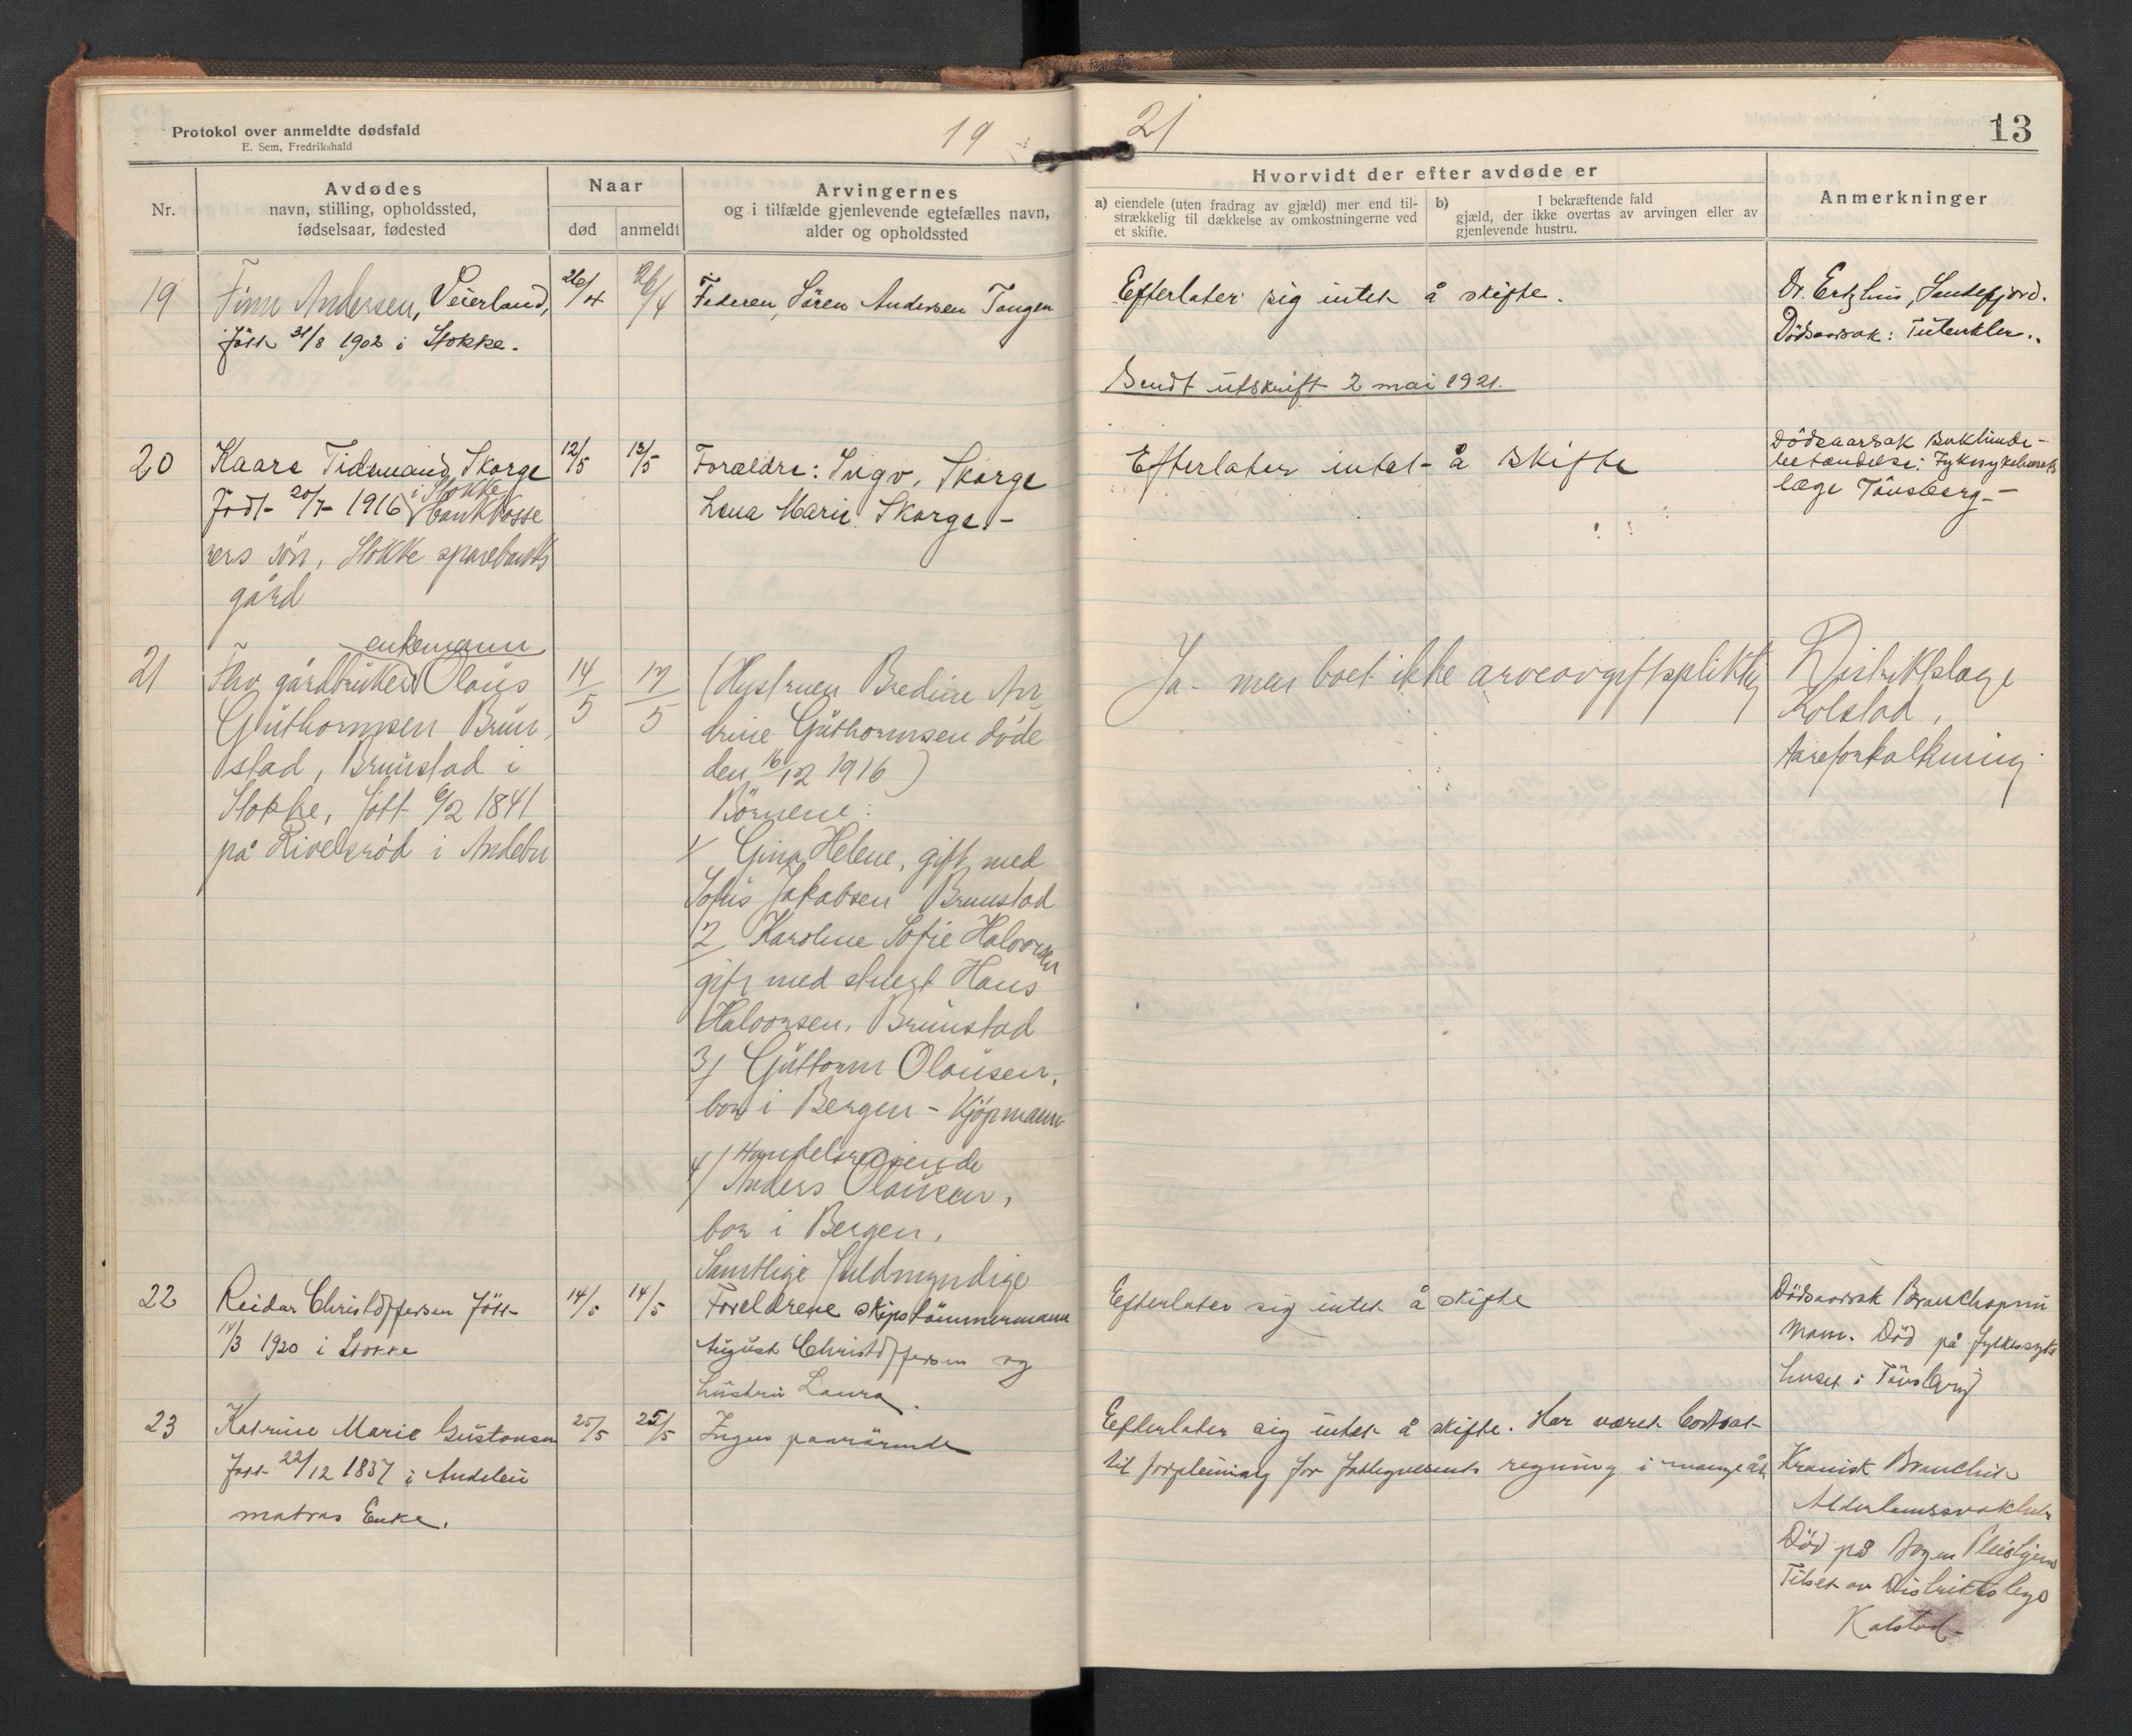 Protokol over anmeldte dødsfald
E. Sem, Fredrikshald
19
21
13
Nr.
Avdødes
navn, stilling, opholdssted,
fødselsaar, fødested
Naar
død
anmeldt
Arvingernes
og i tilfælde gjenlevende egtefælles navn,
alder og opholdssted
Hvorvidt der efter avdøde er
a) eiendele (uten fradrag av gjæld) mer end til-
strækkelig til dækkelse av omkostningerne ved
et skifte.
b) I bekræftende fald
gjæld, der ikke overtas av arvingen eller av
gjenlevende hustru.
Anmerkninger
19
Finn Andersen, Veierland,
født 31/8 1902 i Stokke.
26/4
26/4
Faderen, Sören Andersen Tangen
Efterlater sig intet å skifte.
Sendt utskrift 2 mai 1921.
Dr. Ertzhus, Sandefjord.
Dödsaarsak: Tuberkler..
20
Kaare Tidemand Skorge
Født 20/7 1916 i Stokke
bankkasse
rers sön, Stokke sparebanks
gård
12/5
13/5
Forældre: Ingv. Skorge
Lena Marie Skorge.-
Efterlater intet å skifte
Dödsaarsak Buklinde-
betændelse; Fylkessykehusets
læge Tönsberg.-
21
enkemann
Fhv gårdbruker Olaus
Guthormsen Brun
stad, Brunstad i
Stokke, født 6/2 1841
på Rivelsrød i Andebu
14/5
17/5
(Hustruen Bredine An
drine Guthormsen døde
den 16/12 1916)
Börnene:
1/ Gina Helene, gift med
Sofus Jakobsen Brunstad
2/ Karoline Sofie Halvorsen
gift med stuert Hans
Halvorsen, Brunstad
3/ Guttorm Olausen,
bor i Bergen - Kjöpmann
4/ Handelsreisende
Anders Olausen,
bor i Bergen.
Samtlige fuldmyndige
Ja - men boet ikke arveavgiftspliktig
Distriktslæge
Kolstad,
Aareforkalkning.
22
Reidar Christoffersen född
14/3 1920 i Stokke
14/5
14/5
Foreldrene skipstömmermann
August Christoffersen og
hustru Laura.
Efterlater sig intet å skifte
Dödsaarsak Bronchopnü
moni. Död på fylkessyke
huset i Tönsberg
23
Katrine Marie Gustavsen
født 22/12 1837 i Andebu
matros Enke.
25/5
25/5
Ingen paarörende
Efterlater sig intet å skifte. Har været bortsat
til forpleining for fattigvesents regning i mange år.
Kronisk Bronchit
Alderdomssvakhet
Död på Bogen Pleiehjem
Tilset av Distriktslege
Kolstad-